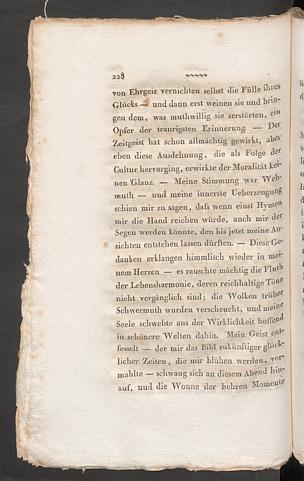 228
von Ehrgeiz vernichten selbst die Fülle ihres
Glücks — und dann erst weinen sie und brin-
gen dem, was muthwillig sie zerstörten, ein
Opfer der traurigsten Erinnerung. — Der
Zeitgeist hat schon allmächtig gewirkt, aber
eben diese Ausdehnung, die als Folge der
Cultur hervorging, erwirkte der Moralität kei-
nen Glanz. — Meine Stimmung war Weh-
muth — und meine innerste Ueberzeugung
schien mir zu sagen, daſs wenn einst Hymen
mir die Hand reichen würde, auch mir der
Segen werden könnte, den bis jetzt meine An-
sichten entstehen lassen dürften. — Diese Ge-
danken erlangen himmlisch wieder in mei-
nem Herzen — es rauschte mächtig die Fluth
der Lebensharmonie, deren reichhaltige Töne
nicht vergänglich sind; die Wolken trüber
Schwermuth wurden verscheucht, und meine
Seele schwebte aus der Wirklichkeit hoffend
in schönere Welten dahin. Mein Geist ent-
fesselt — der mir das Bild zukünftiger glück-
licher Zeiten, die mir blühen werden, vor-
mahlte — schwang sich an diesem Abend hin-
auf, und die Wonne der hehren Momente